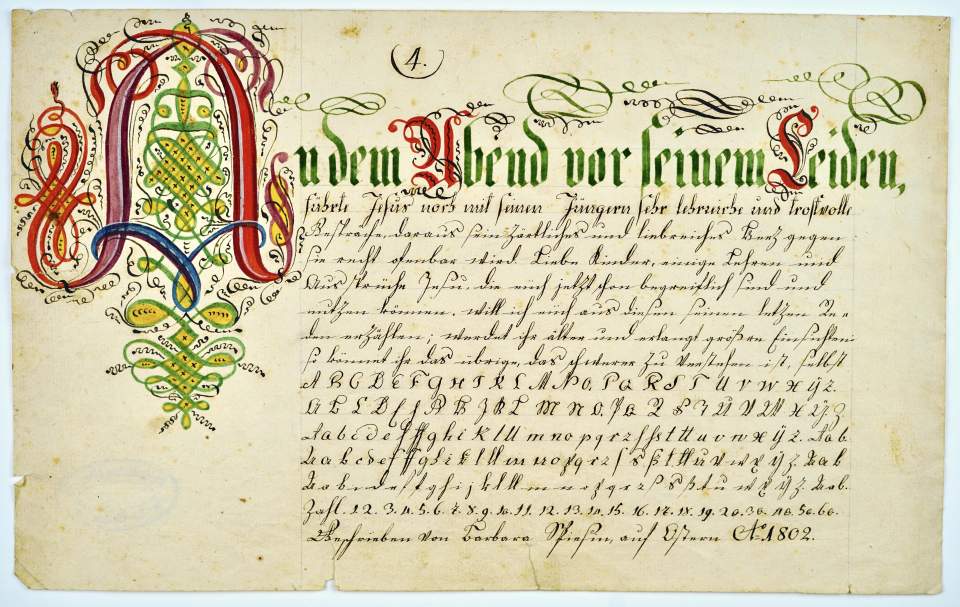 4.
An dem Abend vor seinem Leiden,
führte Jesus noch mit seinen Jüngern sehr lehrreiche und trostvolle
Gespräche, daraus sein zärtliches und liebreiches Herz gegen
sie recht ofenbar wird. Liebe Kinder, einige Lehren und
Aussprüche Jesu, die euch jetzt schon begreiflich sind und
nutzen können, will ich euch aus diesen seinen letzen Re=
den erzählen; werdet ihr älter und erlangt größre Einsichten
so könnet ihr das übrige, das schwerer zu verstehen ist, selbst
A B C D E F G H I K L M N O P Q R S T U V W X Y Z.
A B C D E F G H I K L M N O P Q R S T U V W X Y Z
Zahl. 1. 2. 3. 4. 5. 6. 7. 8. 9. 10. 11. 12. 13. 14. 15. 16. 17. 18. 19. 20. 30. 40. 50. 60.
Geschrieben von Barbara Spiesin, auf Ostern Ao. 1802.